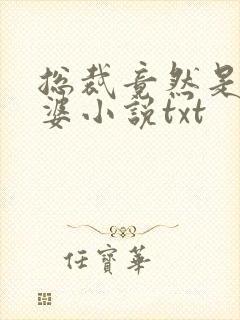 总裁竟然是
婆小说txt
任寶華